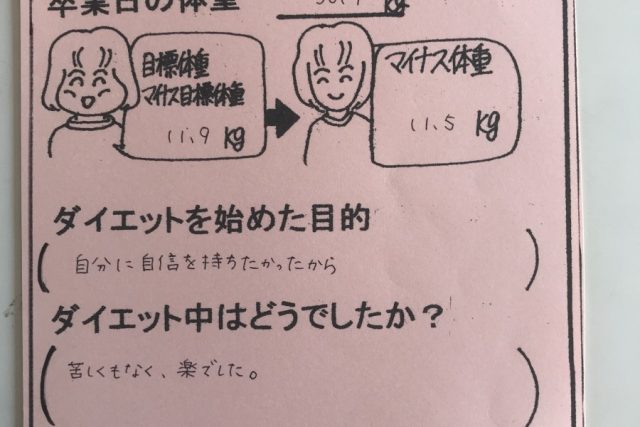 卒業日の体重 kg
目標体重
マイナス目標体重
11.9 kg
マイナス体重
11.5 kg
ダイエットを始めた目的
自分に自信を持ちたかったから
ダイエット中はどうでしたか？
苦しくもなく、楽でした。